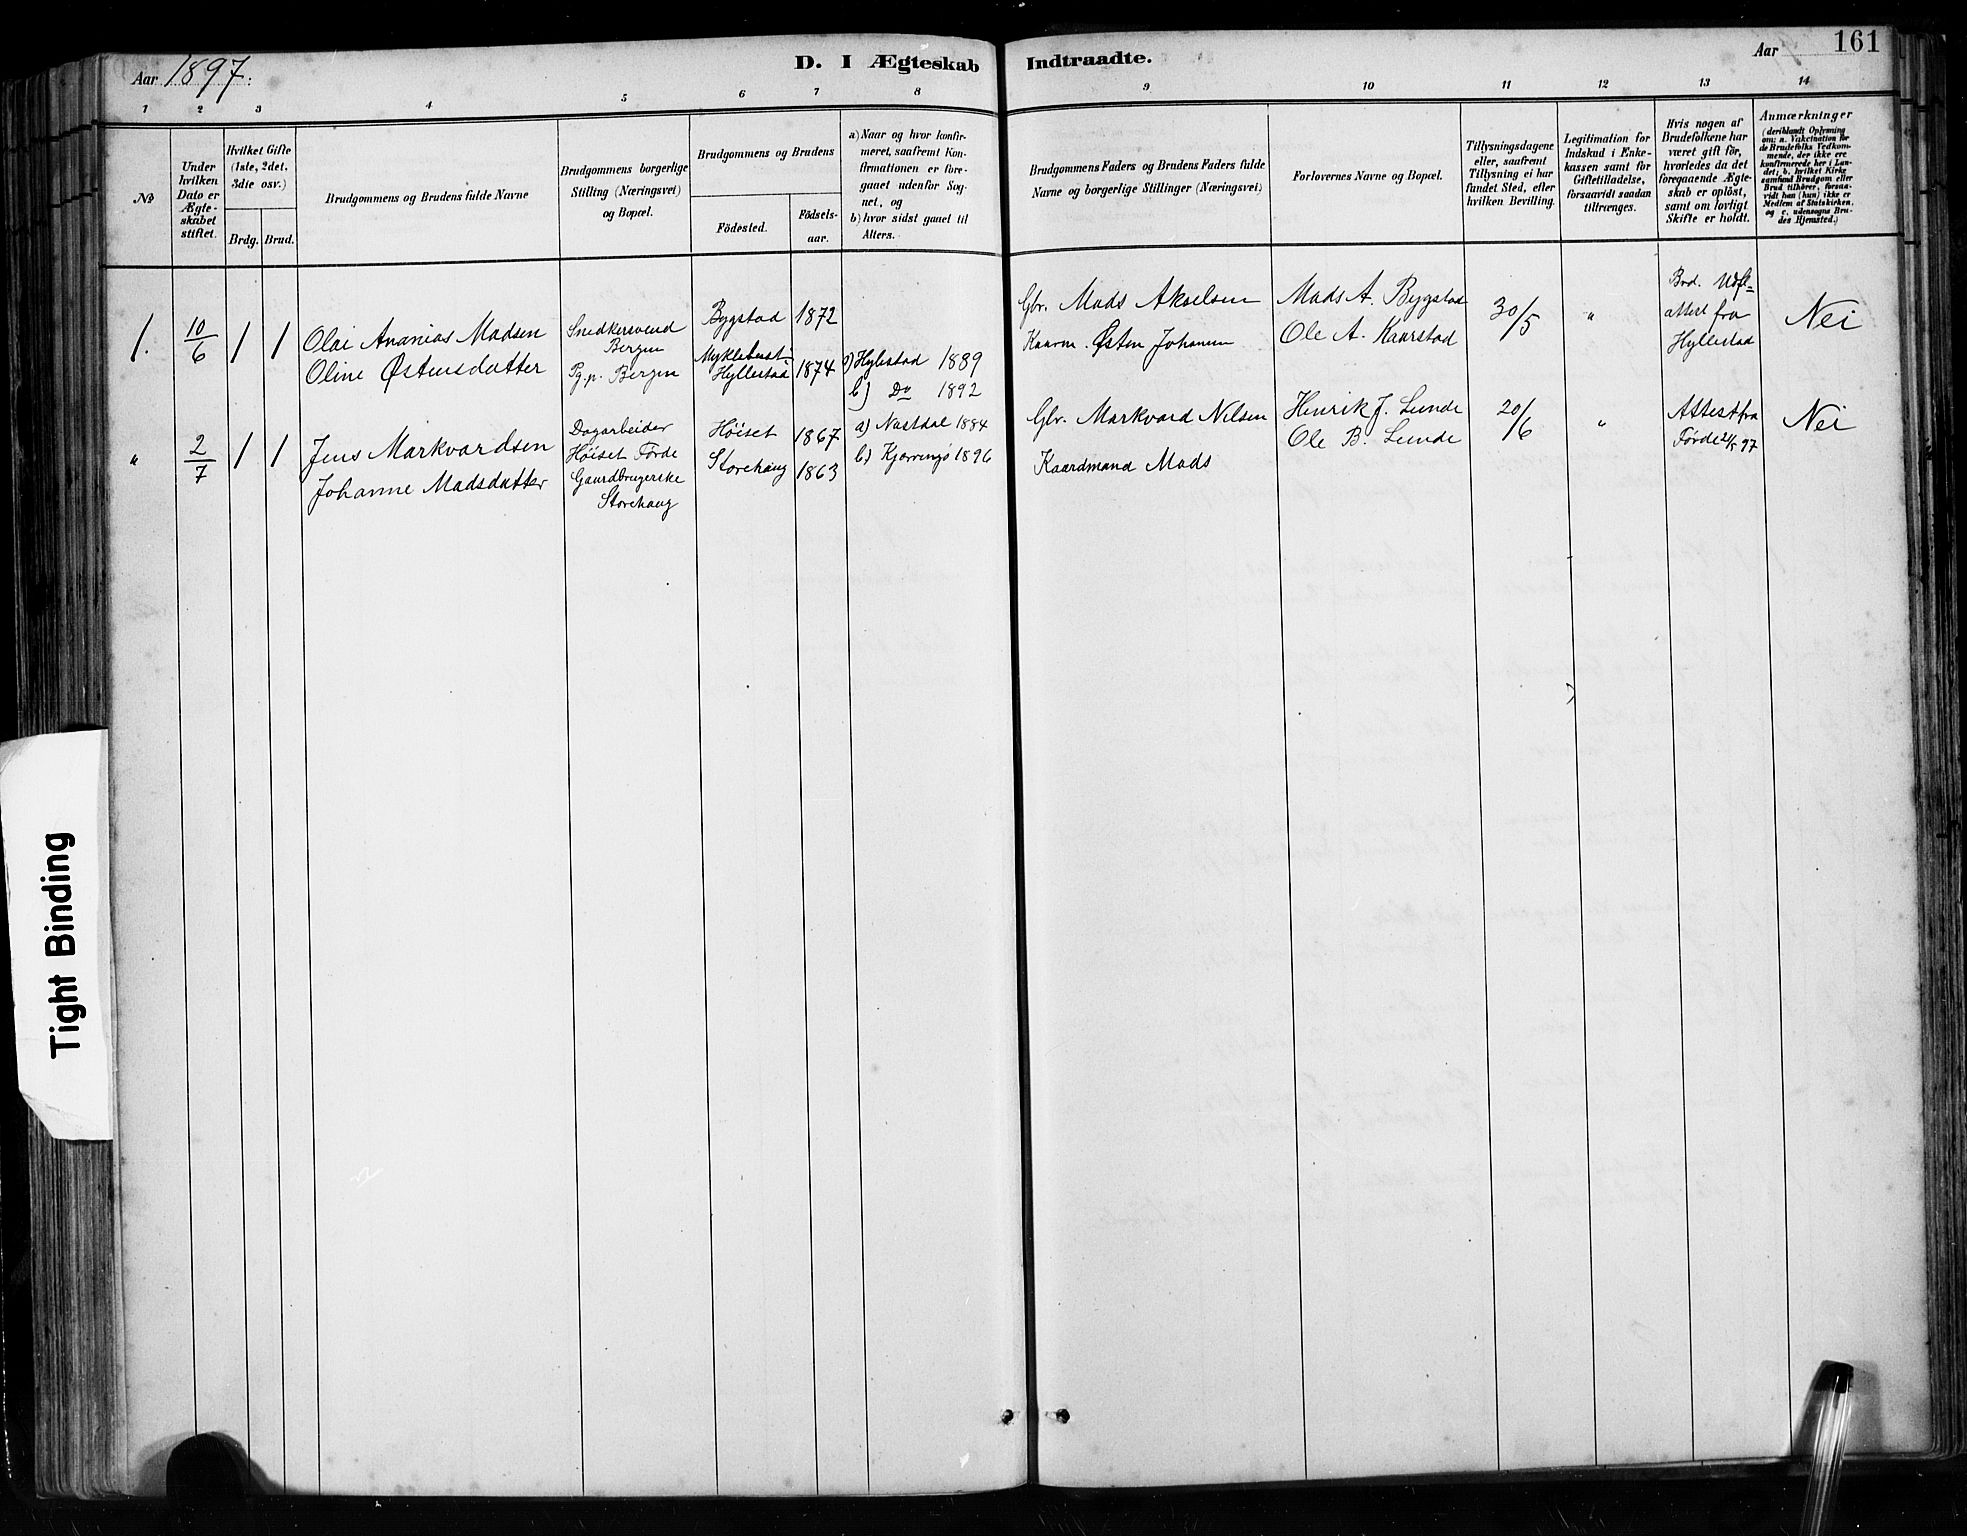 Aar 1897.
D. I Ægteskab Indtraadte.
Aar
161
1 2 3 4 5 6 7 8 9 10 11 12 13 14
No
Under
hvilken
Dato er
Ægte-
skabet
stiftet.
Hvilket Gifte
(1ste, 2det,
3die osv.)
Brdg. Brud.
Brudgommens og Brudens fulde Navne
Brudgommens borgerlige
Stilling (Næringsvei)
og Bopæl.
Brudgommens og Brudens
Fødested.
Fødsels-
aar.
a) Naar og hvor konfir-
meret, saafremt Kon-
firmationen er fore-
gaaet udenfor Sog-
net, og
b) hvor sidst gaaet til
Alters.
Brudgommens Faders og Brudens Faders fulde
Navne og borgerlige Stillinger (Næringsvei)
Forlovernes Navne og Bopæl.
Tillysningsdagene
eller, saafremt
Tillysning ei har
fundet Sted, efter
hvilken Bevilling.
Legitimation for
Indskud i Enke-
kassen samt for
Giftetilladelse,
forsaavidt saadan
tiltrænges.
Hvis nogen af
Brudefolkene har
været gift før,
hvorledes da det
foregaaende Ægte-
skab er opløst,
samt om lovligt
Skifte er holdt.
Anmærkninger
(deriblandt Oplysning
om: a. Vakcination for
de Brudefolks Vedkom-
mende, der ikke ere
konfirmerede her i Lan-
det; b. hvilket Kirke
samfund Brudgom eller
Brud tilhører, forsaa-
vidt han (hun) ikke er
Medlem af Statskirken,
og c. udensogns Bru-
des Hjemsted.)
1. 10/6 1 1
Olai Ananias Madsen
Oline Østensdatter
Snedkersvend
Bergen
Pg.p. Bergen
Bygstad 1872
Myklebust
Hyllestad 1874
a) Hylestad 1889
b) Do 1892
Gbr. Mads Akselsen
Kaarm. Østen Johannn
Mads A. Bygstad
Ole A. Kaarstad
30/5
"
Brd.
attest fra
Hyllestad
Nei
" 2/7 1 1
Jens Markvardsen
Johanne Madsdatter
Dagarbeider
Höiset Förde
Gaardbrugerske
Storehaug
Höiset 1867
Storehaug 1863
a) Naustdal 1884
b.) Kjærringö 1896
Gbr. Markvard Nilsen
Kaardmand Mads
Henrik J. Lunde
Ole B. Lunde
20/6
"
Attest fra
Förde 21/5 97
Nei
Tight Binding